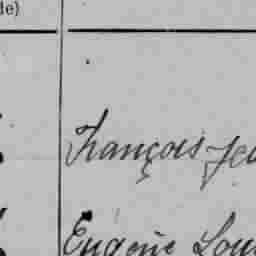 de)
François Je
Eugène Lou